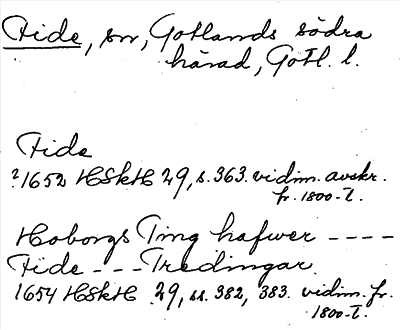 Fide, sn, Gotlands södra
härad, Gotl. l.
Fide
?1652 HSkH 29, s. 363. vidim. avskr.
fr. 1800-t.
Hoborgs Ting hafwer ----
Fide --- Tredingar.
1654 HSkH 29, ss. 382, 383. vidim. fr.
1800-t.